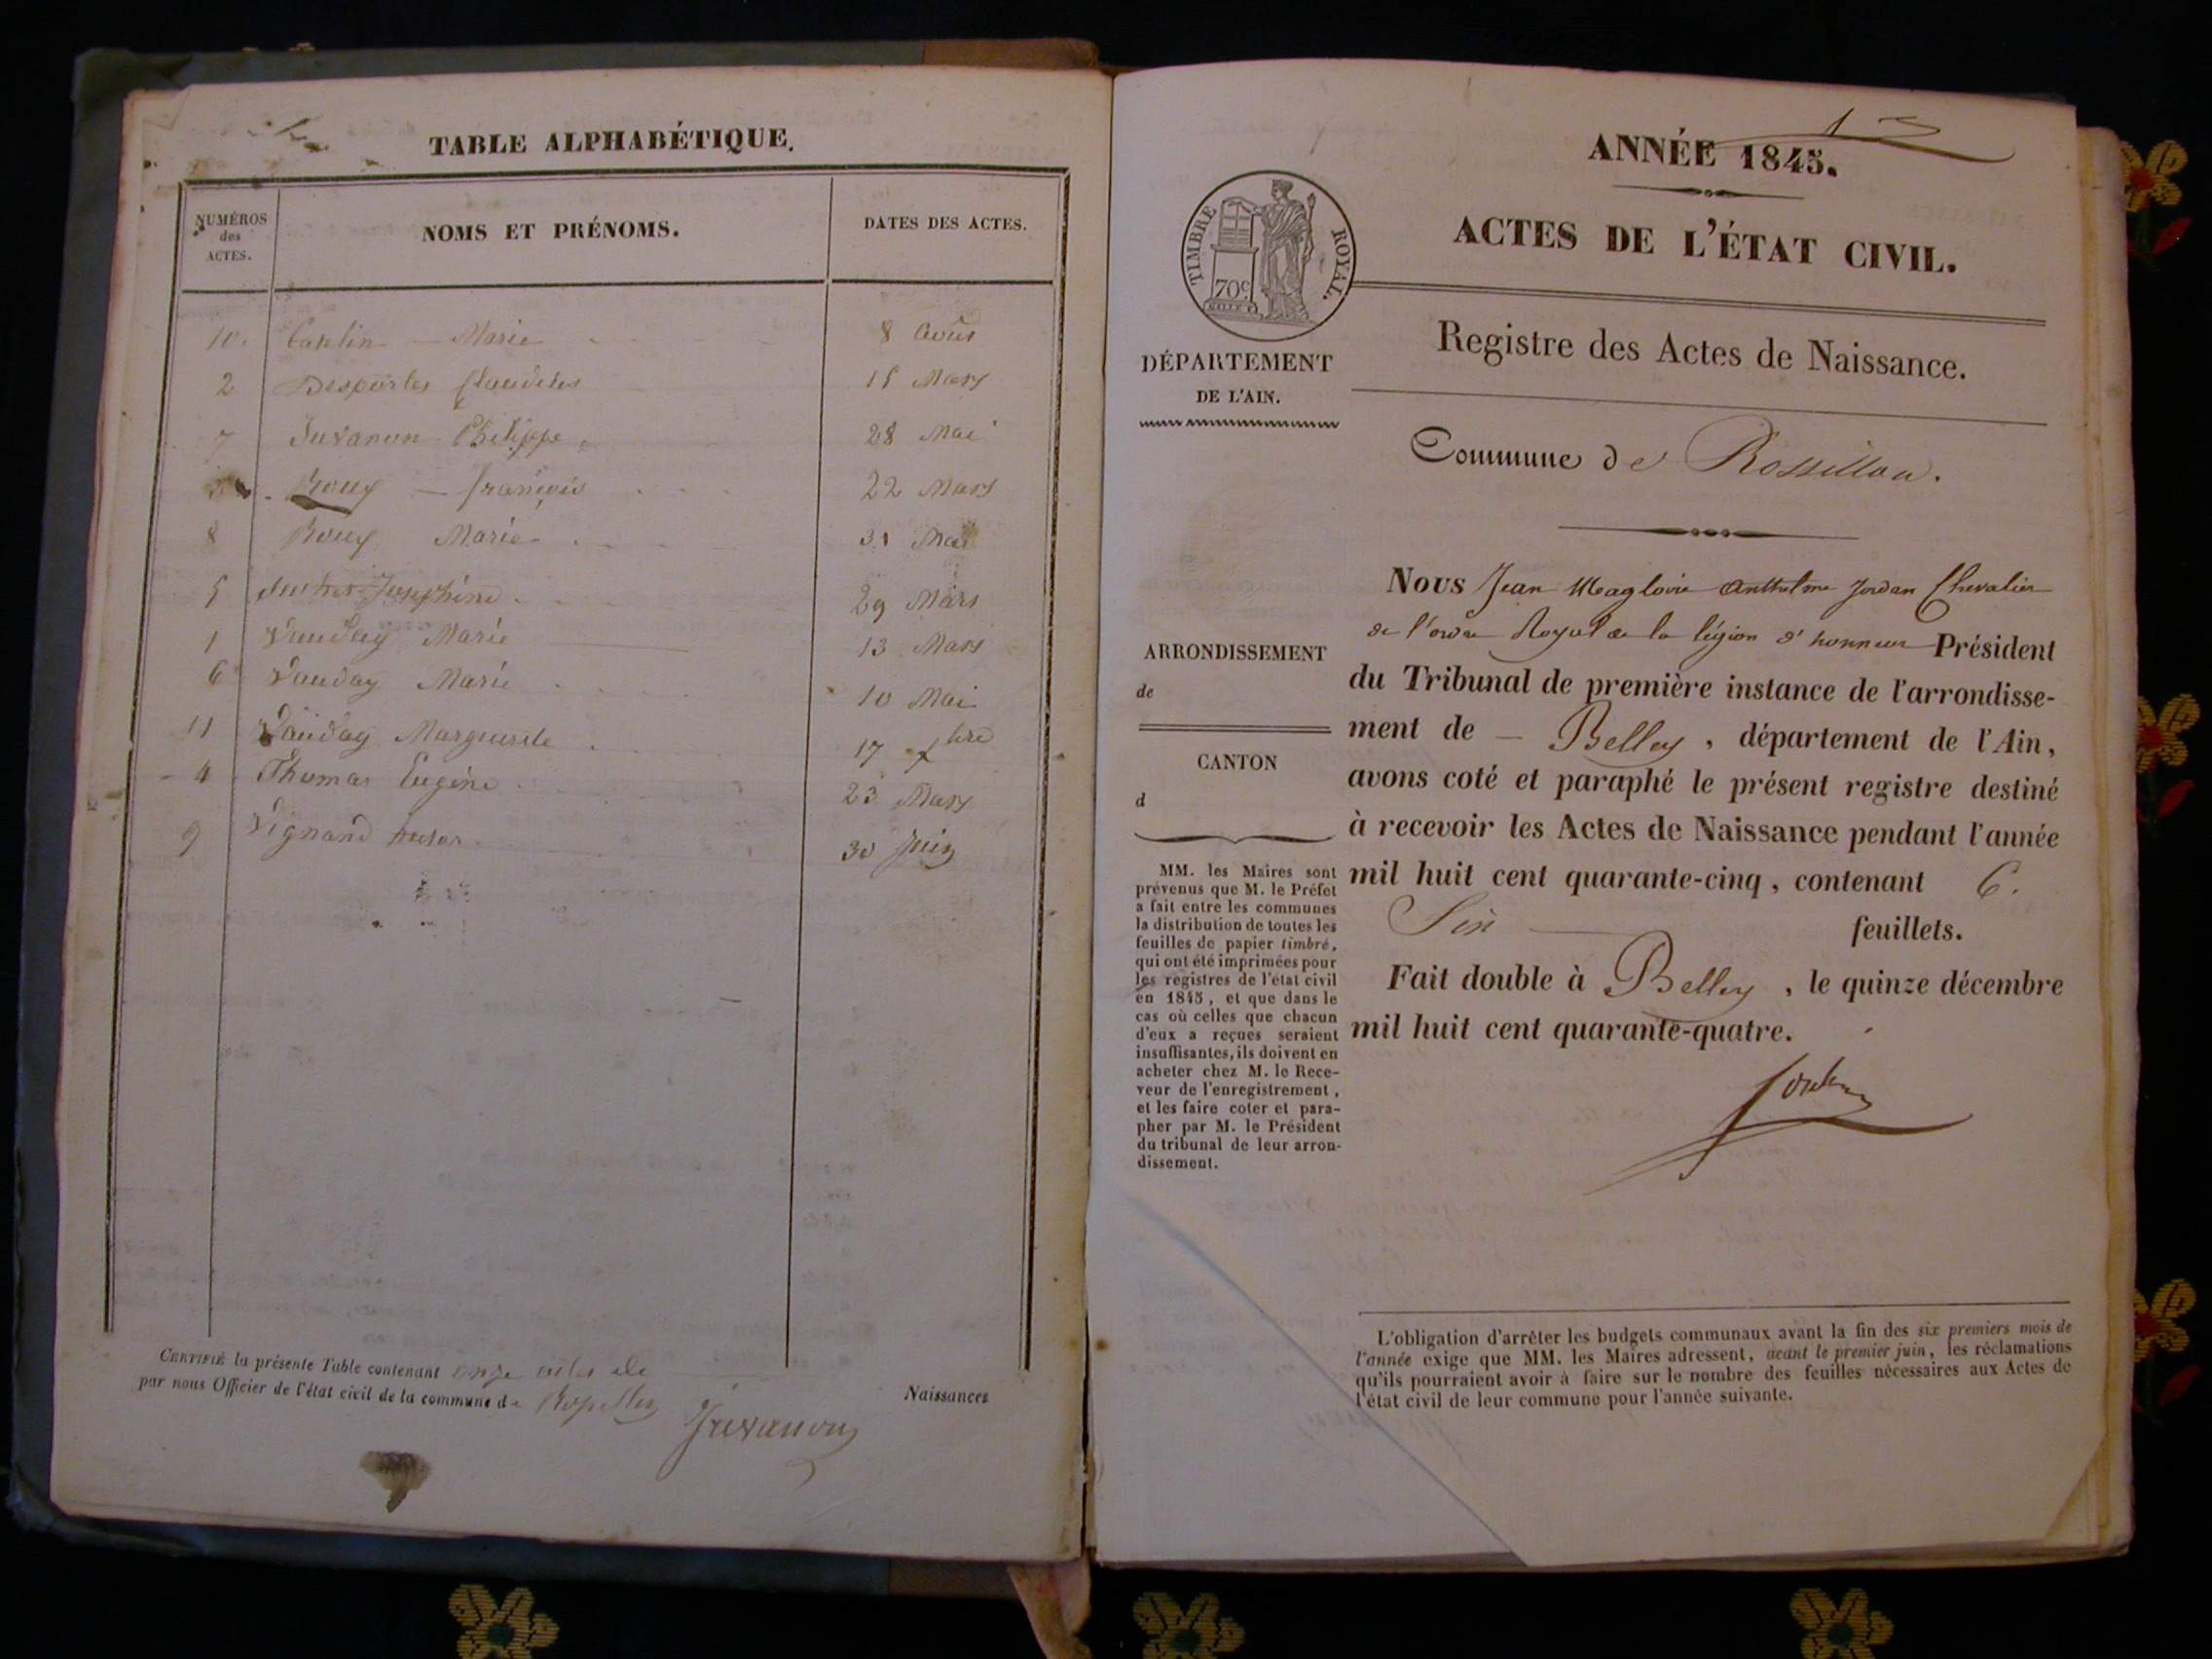 TABLE ALPHABÉTIQUE.
NUMÉROS des ACTES.
NOMS ET PRÉNOMS.
DATES DES ACTES.
10. Marie 8 Août
2 Desportes Claudius 15 Mars
7 Juvanon Philippe 28 Mai
Rouy — François 22 Mars
8 Rouy Marie 31 Mai
5 Joséphine 29 Mars
1 Vauday Marie 13 Mars
6 Vauday Marie 10 Mai
11 Vauday Marguerite 17
4 Thomas Eugène 23 Mars
9 Vignand 30 Juin
CERTIFIÉ la présente Table contenant onze actes de
Naissances
par nous Officier de l'état civil de la commune de Rossillon
Juvanon
1
ANNÉE 1845.
ACTES DE L'ÉTAT CIVIL.
TIMBRE ROYAL.
70c.
DÉPARTEMENT
DE L'AIN.
Registre des Actes de Naissance.
Commune de Rossillon.
ARRONDISSEMENT
de
CANTON
d
MM. les Maires sont
prévenus que M. le Préfet
a fait entre les communes
la distribution de toutes les
feuilles de papier timbré,
qui ont été imprimées pour
les registres de l'état civil
en 1845, et que dans le
cas où celles que chacun
d'eux a reçues seraient
insuffisantes, ils doivent en
acheter chez M. le Rece-
veur de l'enregistrement,
et les faire coter et para-
pher par M. le Président
du tribunal de leur arron-
dissement.
Nous Jean Magloire Anthelme Jordan Chevalier
de l'ordre Royal de la légion d'honneur Président
du Tribunal de première instance de l'arrondisse-
ment de — Belley, département de l'Ain,
avons coté et paraphé le présent registre destiné
à recevoir les Actes de Naissance pendant l'année
mil huit cent quarante-cinq, contenant 6.
Six feuillets.
Fait double à Belley, le quinze décembre
mil huit cent quarante-quatre.
Jordan
L'obligation d'arrêter les budgets communaux avant la fin des six premiers mois de
l'année exige que MM. les Maires adressent, avant le premier juin, les réclamations
qu'ils pourraient avoir à faire sur le nombre des feuilles nécessaires aux Actes de
l'état civil de leur commune pour l'année suivante.